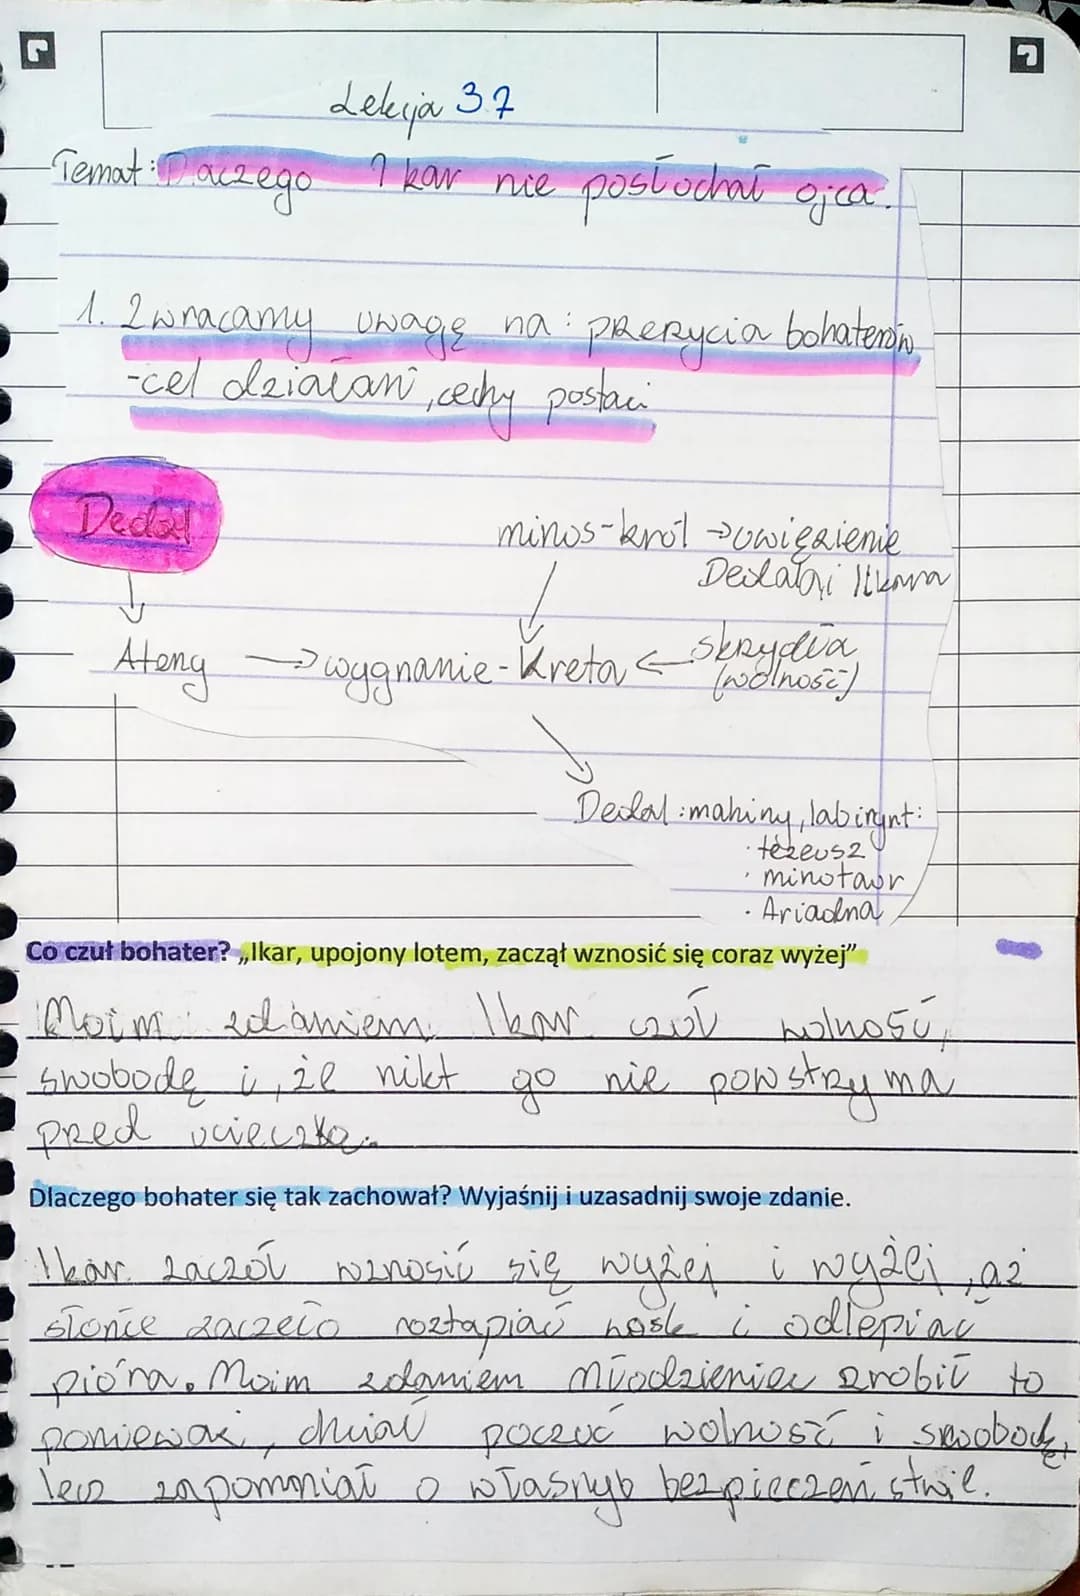 Lekcja 37
Temat: Dlaczego Ikar nie posłochał ojca.
1. Zwracamy uwagę na: przerzycia bohaterów
-cel działań, cechy postaci
Dedal
minos-król → uwięzienie
Dedala i Ikara
Ateny → wygnanie - Kreta ← skrzydła
(wolność)
Dedal: mahiny, labirynt:
· tezeusz
· minotaur
· Ariadna
Co czuł bohater? „Ikar, upojony lotem, zaczął wznosić się coraz wyżej”
Moim zdaniem Ikar czuł wolność,
swobodę i, że nikt go nie powstrzyma
przed ucieczką.
Dlaczego bohater się tak zachował? Wyjaśnij i uzasadnij swoje zdanie.
Ikar zaczół wznosić się wyżej i wyżej, aż
słońce zaczeło roztapiać wosk i odlepiać
pióra. Moim zdaniem młodzieniec zrobił to
ponieważ, chciał poczuć wolność i swobodę,
lecz zapomniał o własnym bezpieczeństwie.